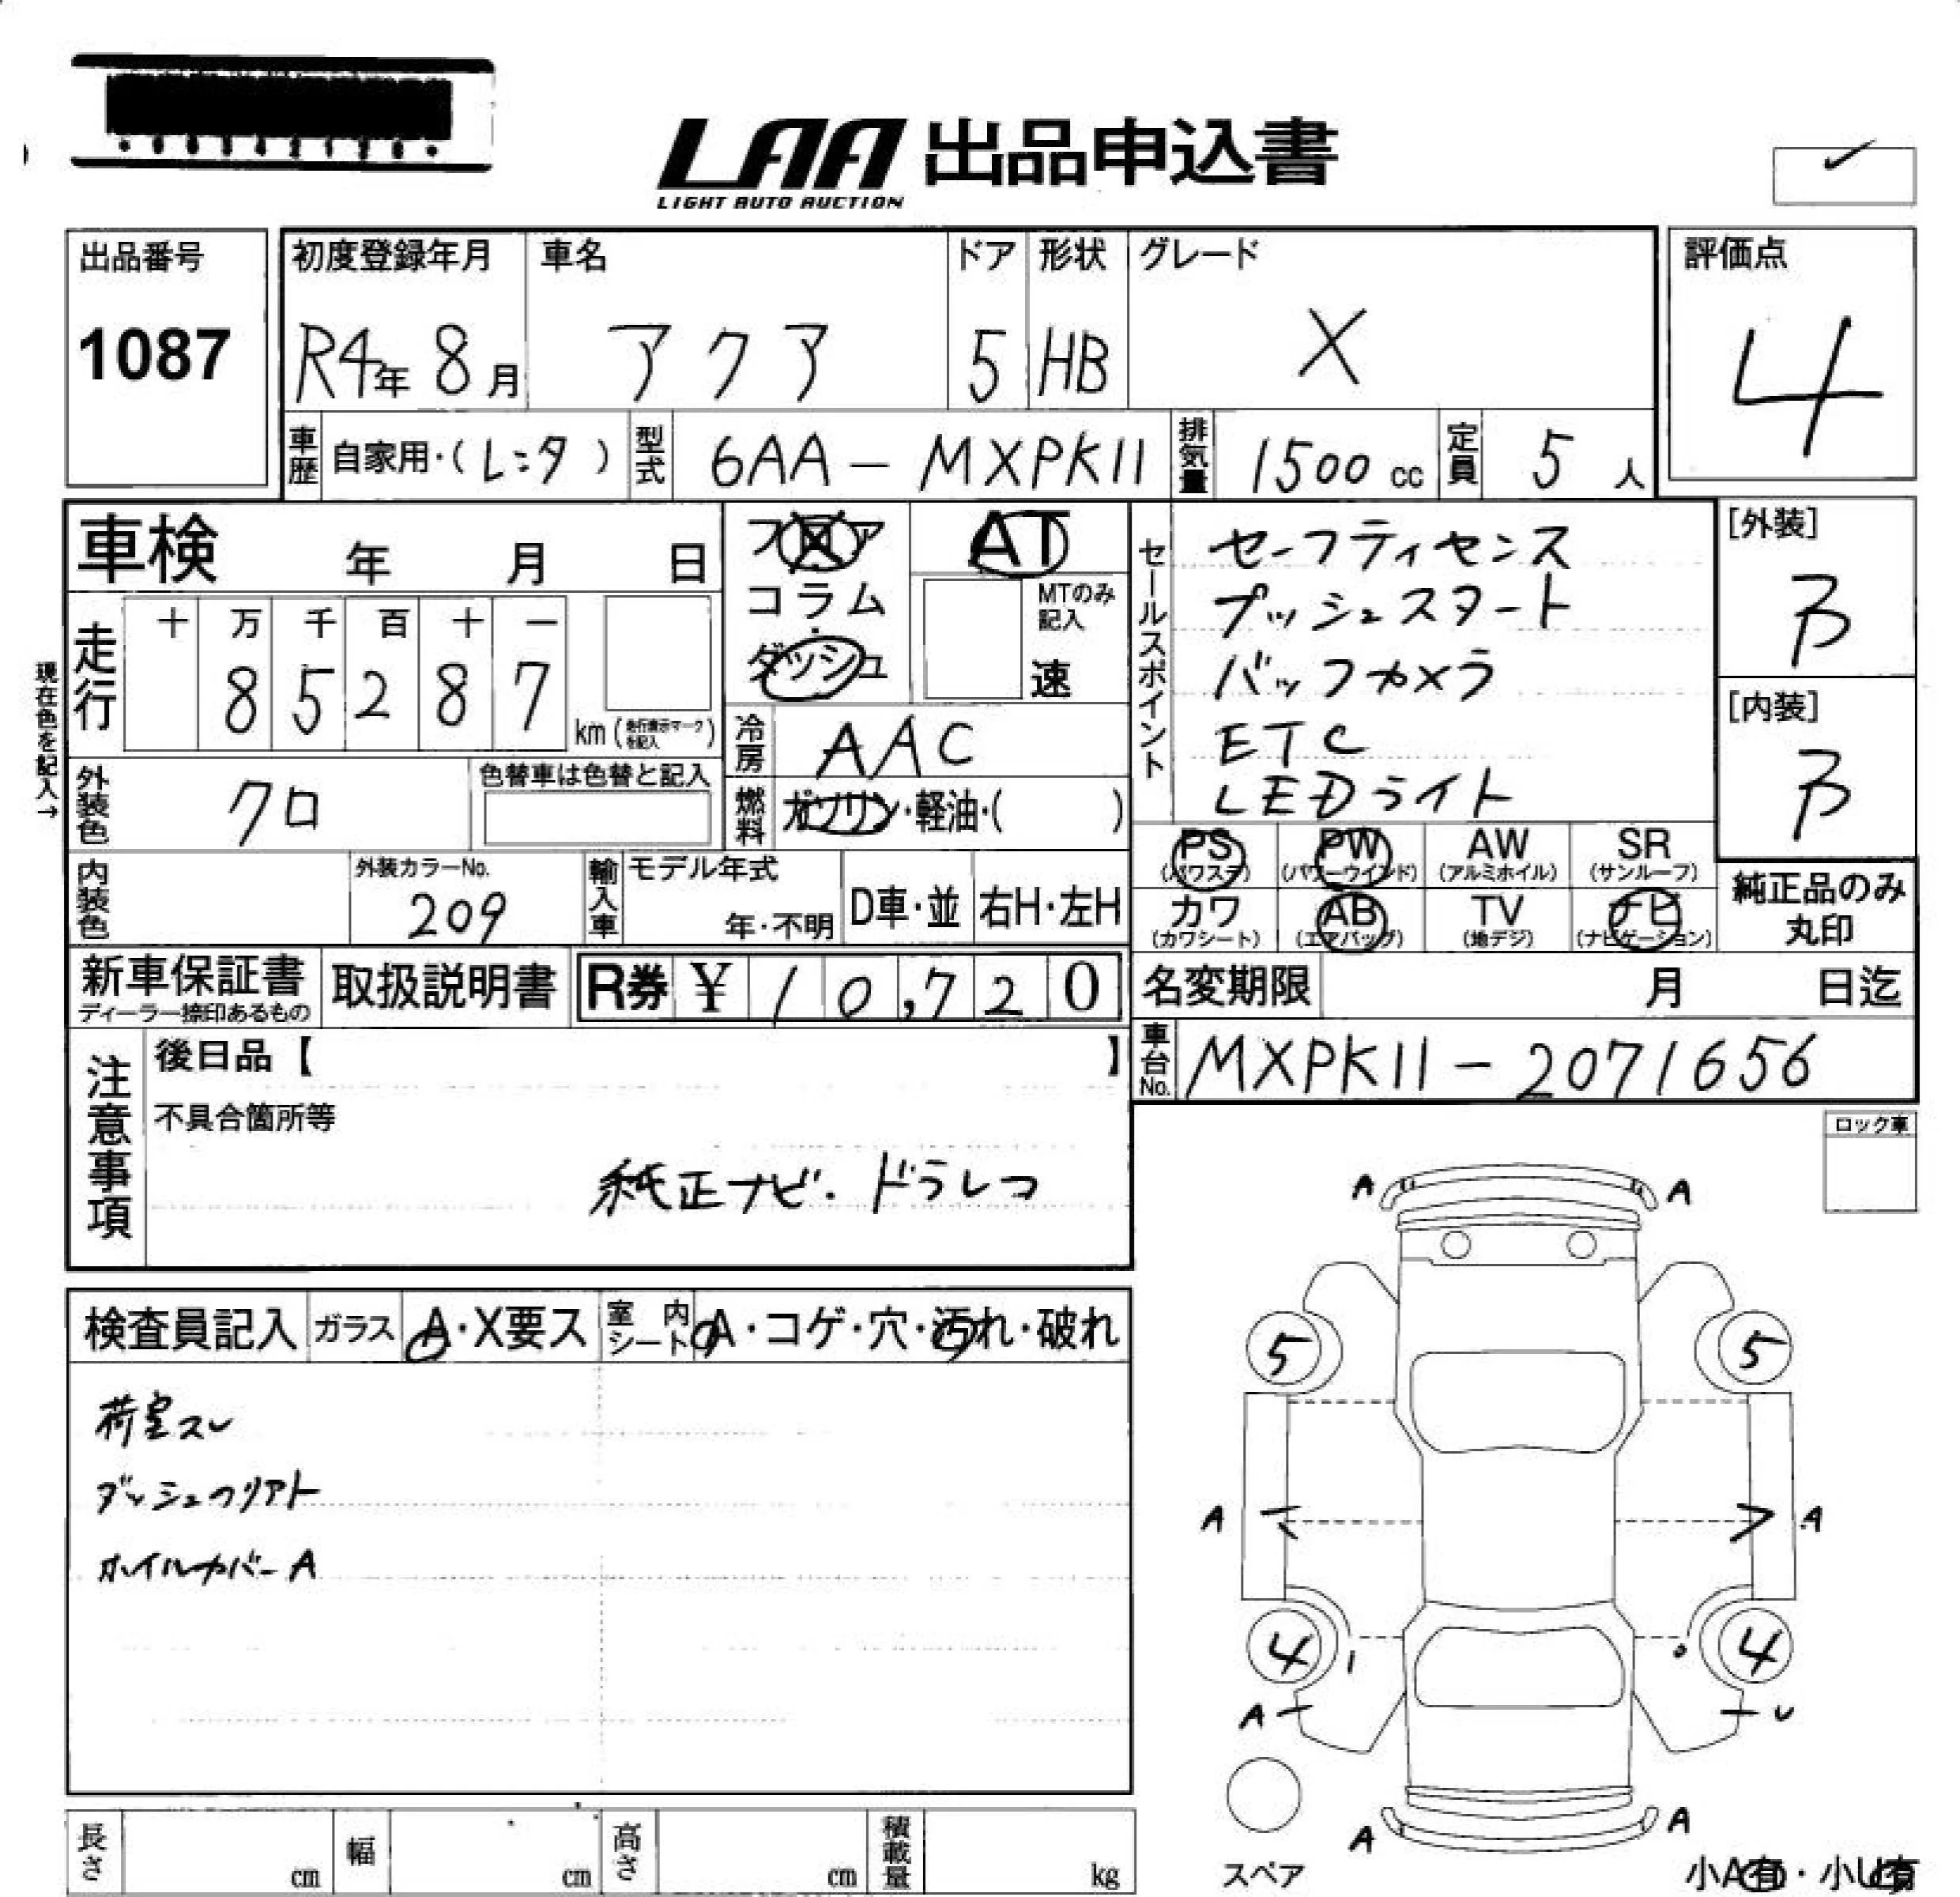 LAA 出品申込書
LIGHT AUTO AUCTION
出品番号
1087
初度登録年月
R4年 8月
車名
アクア
ドア
5
形状
HB
グレード
X
評価点
4
車歴
自家用・(レンタ)
型式
6AA - MXPK11
排気量
1500 cc
定員
5 人
車検 年 月 日
フロア
コラム
ダッシュ
AT
MTのみ記入
速
セールスポイント
セーフティセンス
プッシュスタート
バックカメラ
ETC
LEDライト
[外装]
B
[内装]
B
現在色を記入→
走行
十 万 千 百 十 一
8 5 2 8 7
km (走行表示マークを記入)
冷房
AAC
外装色
クロ
色替車は色替と記入
燃料
ガソリン・軽油・( )
PS
(パワステ)
PW
(パワーウインド)
AW
(アルミホイル)
SR
(サンルーフ)
カワ
(カワシート)
AB
(エアバッグ)
TV
(地デジ)
ナビ
(ナビゲーション)
純正品のみ
丸印
内装色
外装カラーNo.
209
輸入車
モデル年式
年・不明
D車・並
右H・左H
新車保証書
ディーラー捺印あるもの
取扱説明書
R券 ¥ 10,720
名変期限 月 日迄
車台No.
MXPK11 - 2071656
注意事項
後日品【 】
不具合箇所等
純正ナビ・ドラレコ
ロック車
検査員記入
ガラス
A・X要ス
室内シート
A・コゲ・穴・汚れ・破れ
荷室スレ
ダッシュクリアト
ホイルカバーA
A A
5 5
A A
4 4
A U
A A
スペア
小A有・小U有
長さ cm
幅 cm
高さ cm
積載量 kg